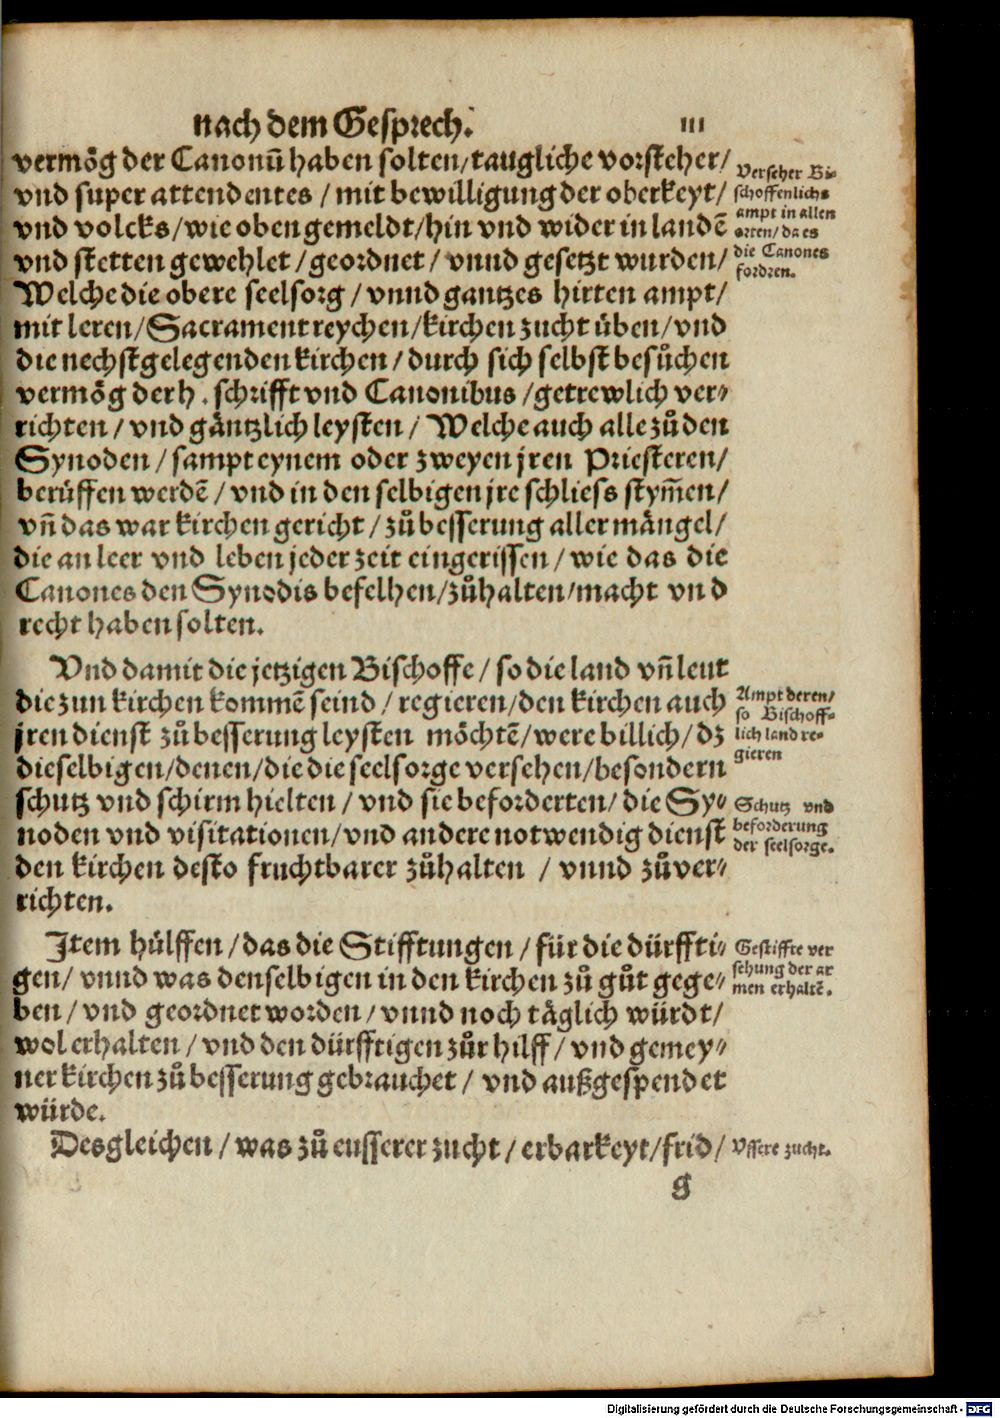 nach dem Gesprech. III
vermög der Canonū haben solten/taugliche vorsteher/
vnd super attendentes / mit bewilligung der oberkeyt/
vnd volcks/wie oben gemeldt/hin vnd wider in landē
vnd stetten gewehlet /geordnet / vnnd gesetzt wurden/
Welche die obere seelsorg / vnnd gantzes hirten ampt/
mit leren/Sacrament reychen/kirchen zucht üben/vnd
die nechst gelegenden kirchen / durch sich selbst besůchen
vermög der h. schrifft vnd Canonibus /getrewlich ver⸗
richten / vnd gäntzlich leysten / Welche auch alle zů den
Synoden / sampt eynem oder zweyen jren Priesteren/
berüffen werdē / vnd in den selbigen jre schliess stym̄en/
vn̄ das war kirchen gericht / zů besserung aller mängel/
die an leer vnd leben jeder zeit eingerissen / wie das die
Canones den Synodis befelhen/zůhalten/macht vnd
recht haben solten.
Verseher Bi⸗
schoffenlichs
ampt in allen
orten/ da es
die Canones
fordren.
Vnd damit die jetzigen Bischoffe / so die land vn̄ leut
die zun kirchen kommē seind / regieren/den kirchen auch
jren dienst zů besserung leysten möchtē/were billich/ dz
dieselbigen/denen/die die seelsorge versehen/besondern
schutz vnd schirm hielten / vnd sie beforderten/ die Sy⸗
noden vnd visitationen/vnd andere notwendig dienst
den kirchen desto fruchtbarer zůhalten / vnnd zůver⸗
richten.
Ampt deren/
so Bischoff⸗
lich land re⸗
gieren
Schutz vnd
beforderung
der seelsorge.
Item hülffen /das die Stifftungen / für die dürffti⸗
gen/ vnnd was denselbigen in den kirchen zů gůt gege⸗
ben / vnd geordnet worden / vnnd noch täglich würdt/
wol erhalten / vnd den dürfftigen zůr hilff / vnd gemey⸗
ner kirchen zů besserung gebrauchet / vnd außgespendet
würde.
Gestiffte ver
sehung der ar
men erhaltē.
Desgleichen / was zů eusserer zucht / erbarkeyt/frid/
Vssere zucht.
g
Digitalisierung gefördert durch die Deutsche Forschungsgemeinschaft - DFG